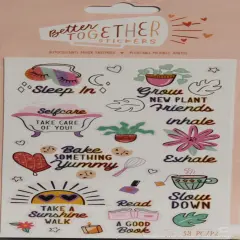 Better
TOGETHER
STICKERS
Sleep In
Grow
NEW PLANT
Friends
inhale
Selfcare
TAKE CARE OF YOU!
Bake
Something
Yummy
Exhale
TAKE A
Sunshine
WALK
Read
A GOOD
Book
Slow
DOWN